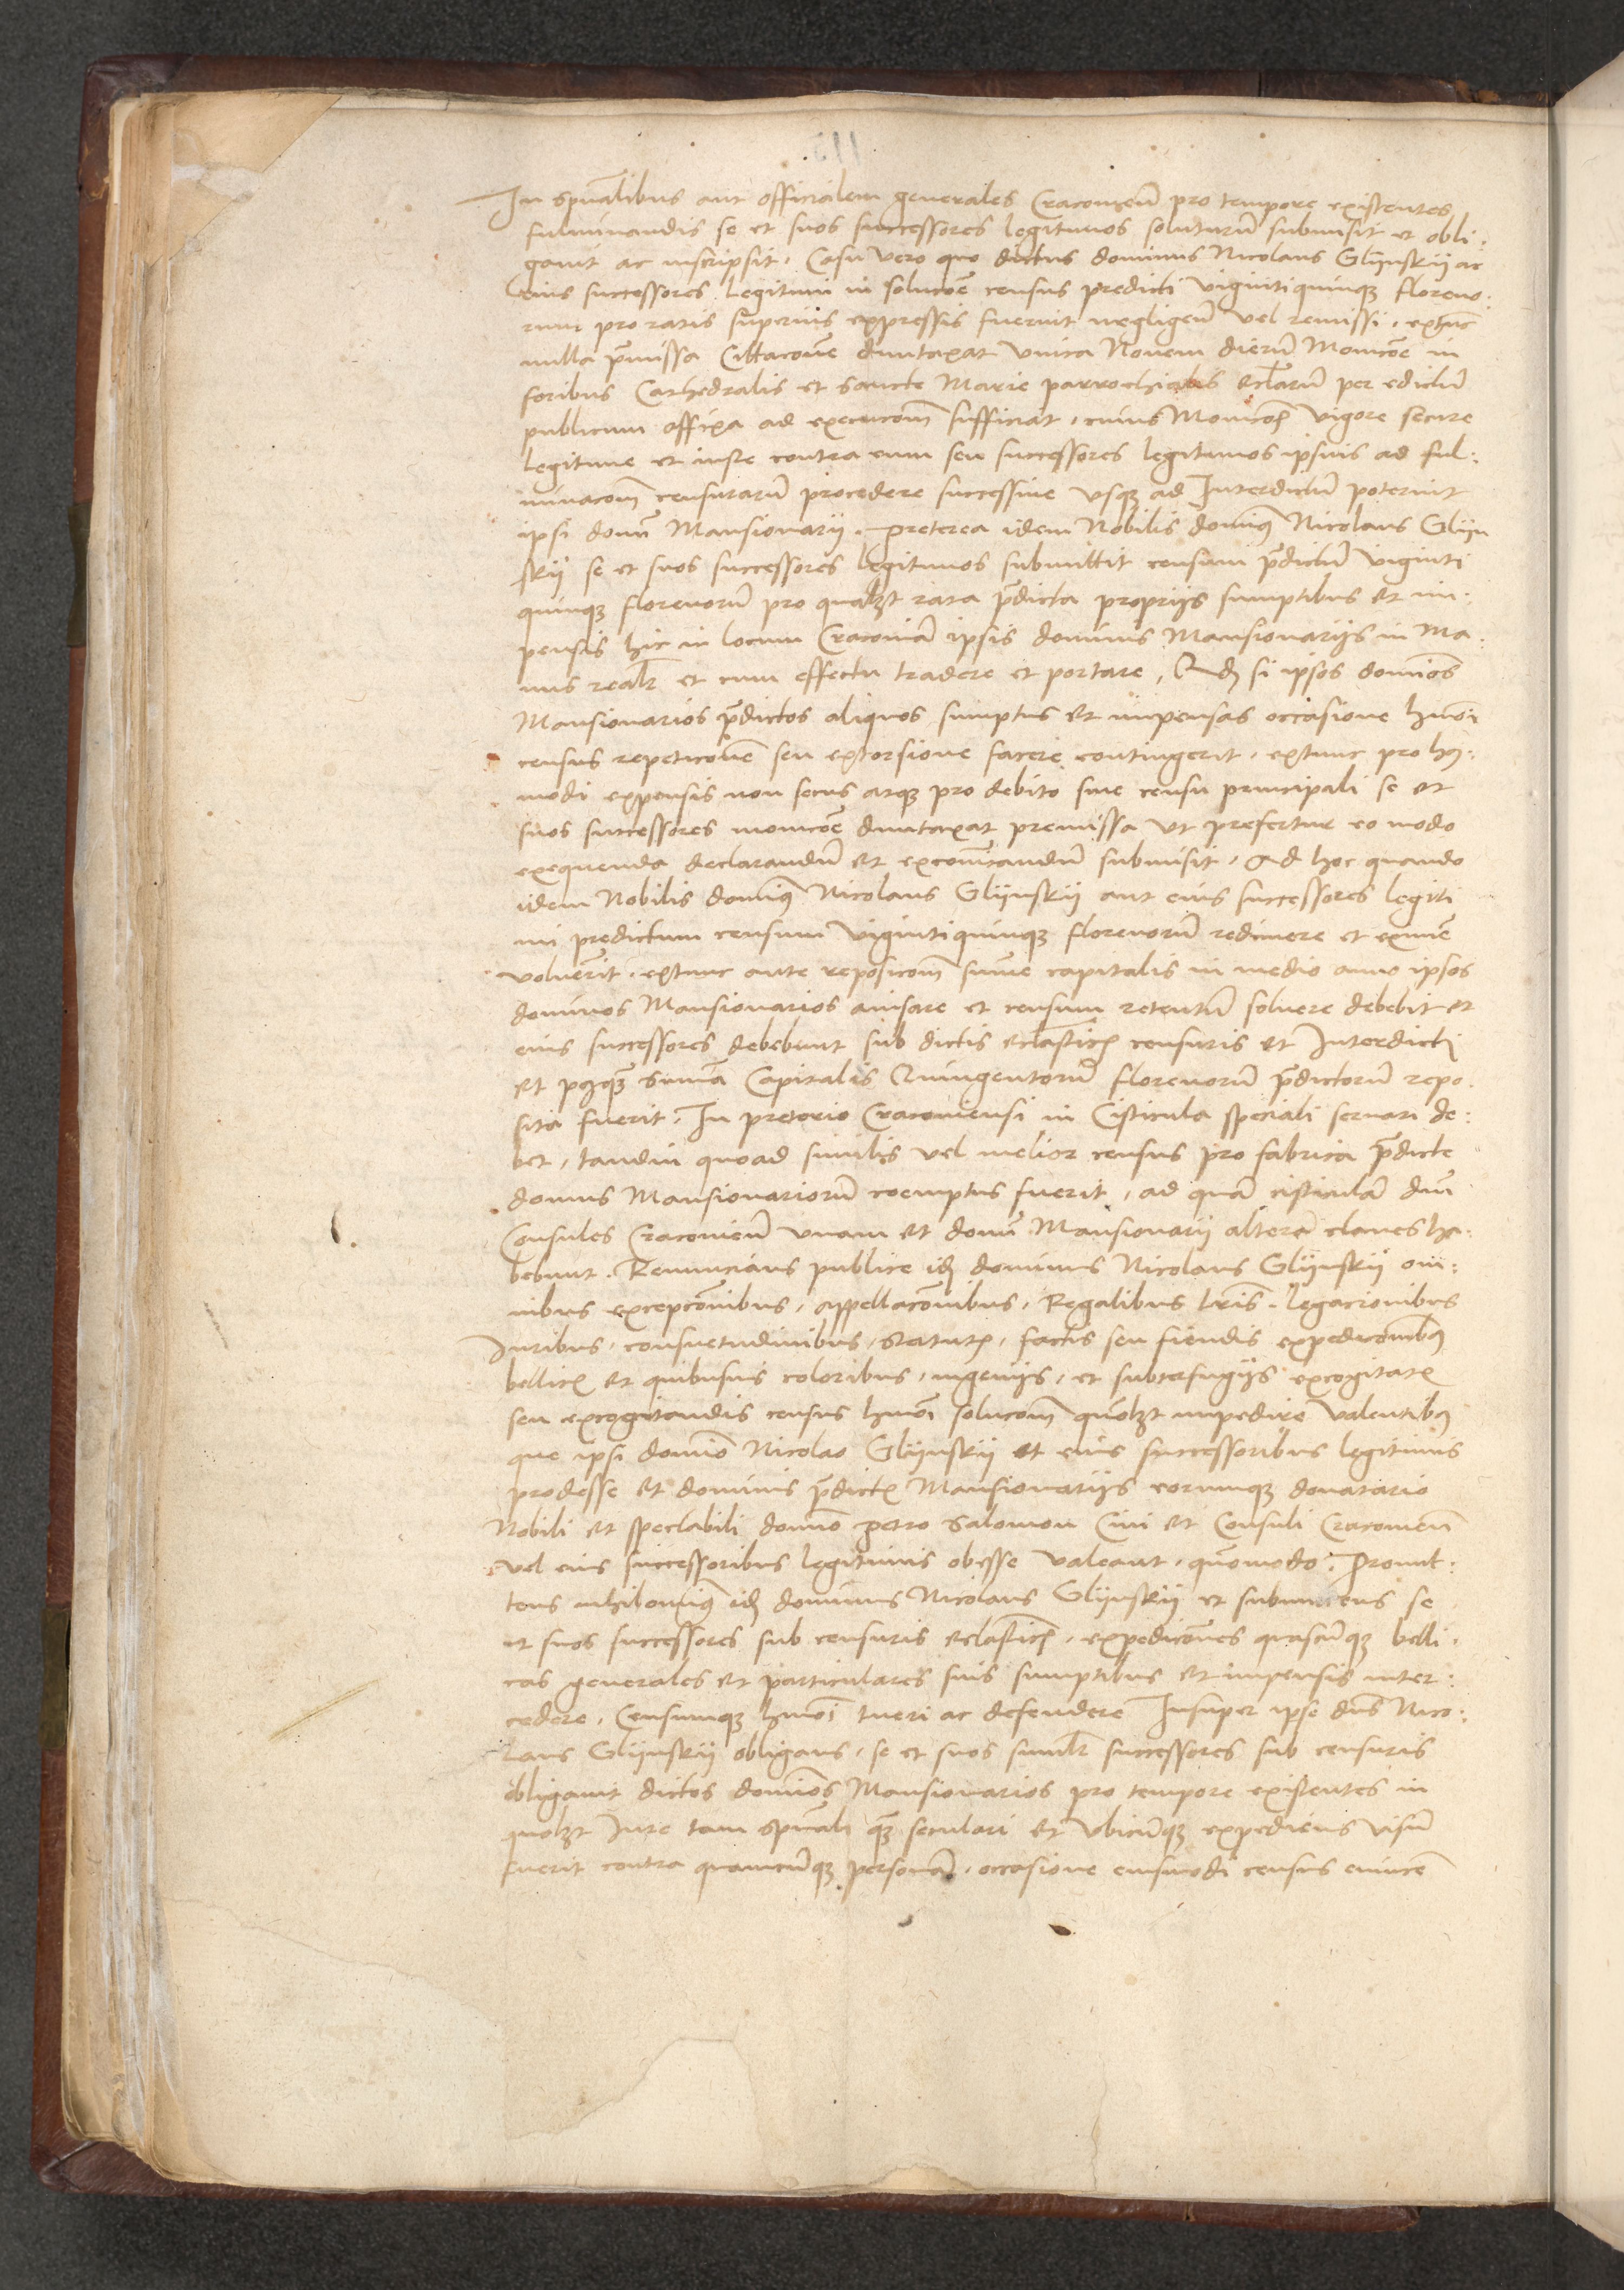 In spūalibus aut officialem generales Cracovieñ pro tempore existentes
fulminandis se et suos successores legitimos soluturū submisit et obli-
gavit ac inscripsit. Casu vero quo dictus dominus Nicolaus Glijnskij ac
eius successores legitimi in solucōe census predicti vigintiquinqꝫ floreno-
rum pro ratis superius expressis fuerint negligeñ vel remissi, extūc
nulla p̄missa Cittacōne duntaxat unica Novem dierū Monicōe in
foribus Cathedralis et sancte Marie parrochialis eccl̄iarū per edictū
publicum affixa ad execucōm sufficiat, cuius Monicōis vigore secure
legitime et iuste contra eum seu successores legitimos ipsius ad ful-
minacōm censurarū procedere successive usqꝫ ad Interdictū poterint
ipsi domī Mansionarii. Preterea idem Nobilis dominꝰ Nicolaus Glijn
skij se et suos successores legitimos submittit censum p̄dictū viginti
quinqꝫ florenorū pro qualꝫt rata p̄dicta proprijs sumptibus et im-
pensis hic in locum Cracoviā ipsis dominis Mansionarijs in Ma-
nus realr̄ et cum effectu tradere et portare, Qđ si ipsos dominos
Mansionarios p̄dictos aliquos sumptus et impensas occasione hmōi
census repeticōne seu extorsione facere contingerit, extunc pro hꝰ-
modi expensis non secus atqꝫ pro debito sive censu principali se et
suos successores monicōe duntaxat premissa ut prefertur eo modo
exequenda declarandū et excoīcandū submisit, Ad hoc quando
idem Nobilis dominꝰ Nicolaus Glijnskij aut eius successores legiti
mi predictum censum vigintiquinqꝫ florenorū redimere et eximē
voluerīt, extunc ante reposicōm sum̄e capitalis in medio anno ipsos
dominos Mansionarios avisare et censum retentū solvere debebit et
eius successores debebunt sub dictis ecclasticꝭ censuris et Interdicti
et postqꝫ sum̄a Capitalis Quingentorū florenorū p̄dictorū repo-
sita fuerit, In pretorio Cracoviensi in Cisticula speciali servari de-
bet, tamdiu quoad similis vel melior census pro fabrica p̄dicte
domus Mansionariorū coemptus fuerit, ad quā cisticulā dn̄i
Consules Cracovieñ unam et domī Mansionarii alterā claves ha-
bebunt. Renuncians publice idē dominus Nicolaus Glijnskij om-
nibus excepcōnibus, appellacōnibus, Regalibus l̄ris, legacionibus
Iuribus, consuetudinibus, statutꝭ, factis seu fiendis expedicōnibꝰ
bellicꝭ et quibusvis coloribus, ingenijs, et subterfugijs excogitatꝭ
seu excogitandis census hmōi solucōm quōlꝫt impedire valentibꝰ
que ipsi domīo Nicolao Glijnskij et eius successoribus legitimis
prodesse et dominis p̄dictꝭ Mansionarijs eorumqꝫ donatario
Nobili et spectabili domīo petro Salomon Civi et Consuli Cracovieñ
vel eius successoribus legitimis obesse valeant, quōmodo. Promit-
tens nihilominꝰ idē dominus Nicolaus Glijnskij et submittens se
et suos successores sub censuris ecclasticꝭ, expedicōnes quascūqꝫ belli-
cas generales et particulares suis sumptibus et impensis inter-
cedere, Censumqꝫ hmōi tueri ac defendere Insuper ipse dn̄s Nico-
laus Glijnskij obligans, se et suos similr̄ successores sub censuris
obligavit dictos dominos Mansionarios pro tempore existentes in
quolꝫt Iure tam spūali qꝫ seculari et ubicūqꝫ expediens visū
fuerit contra quamcūqꝫ personā, occasione eiusmodi census evincē